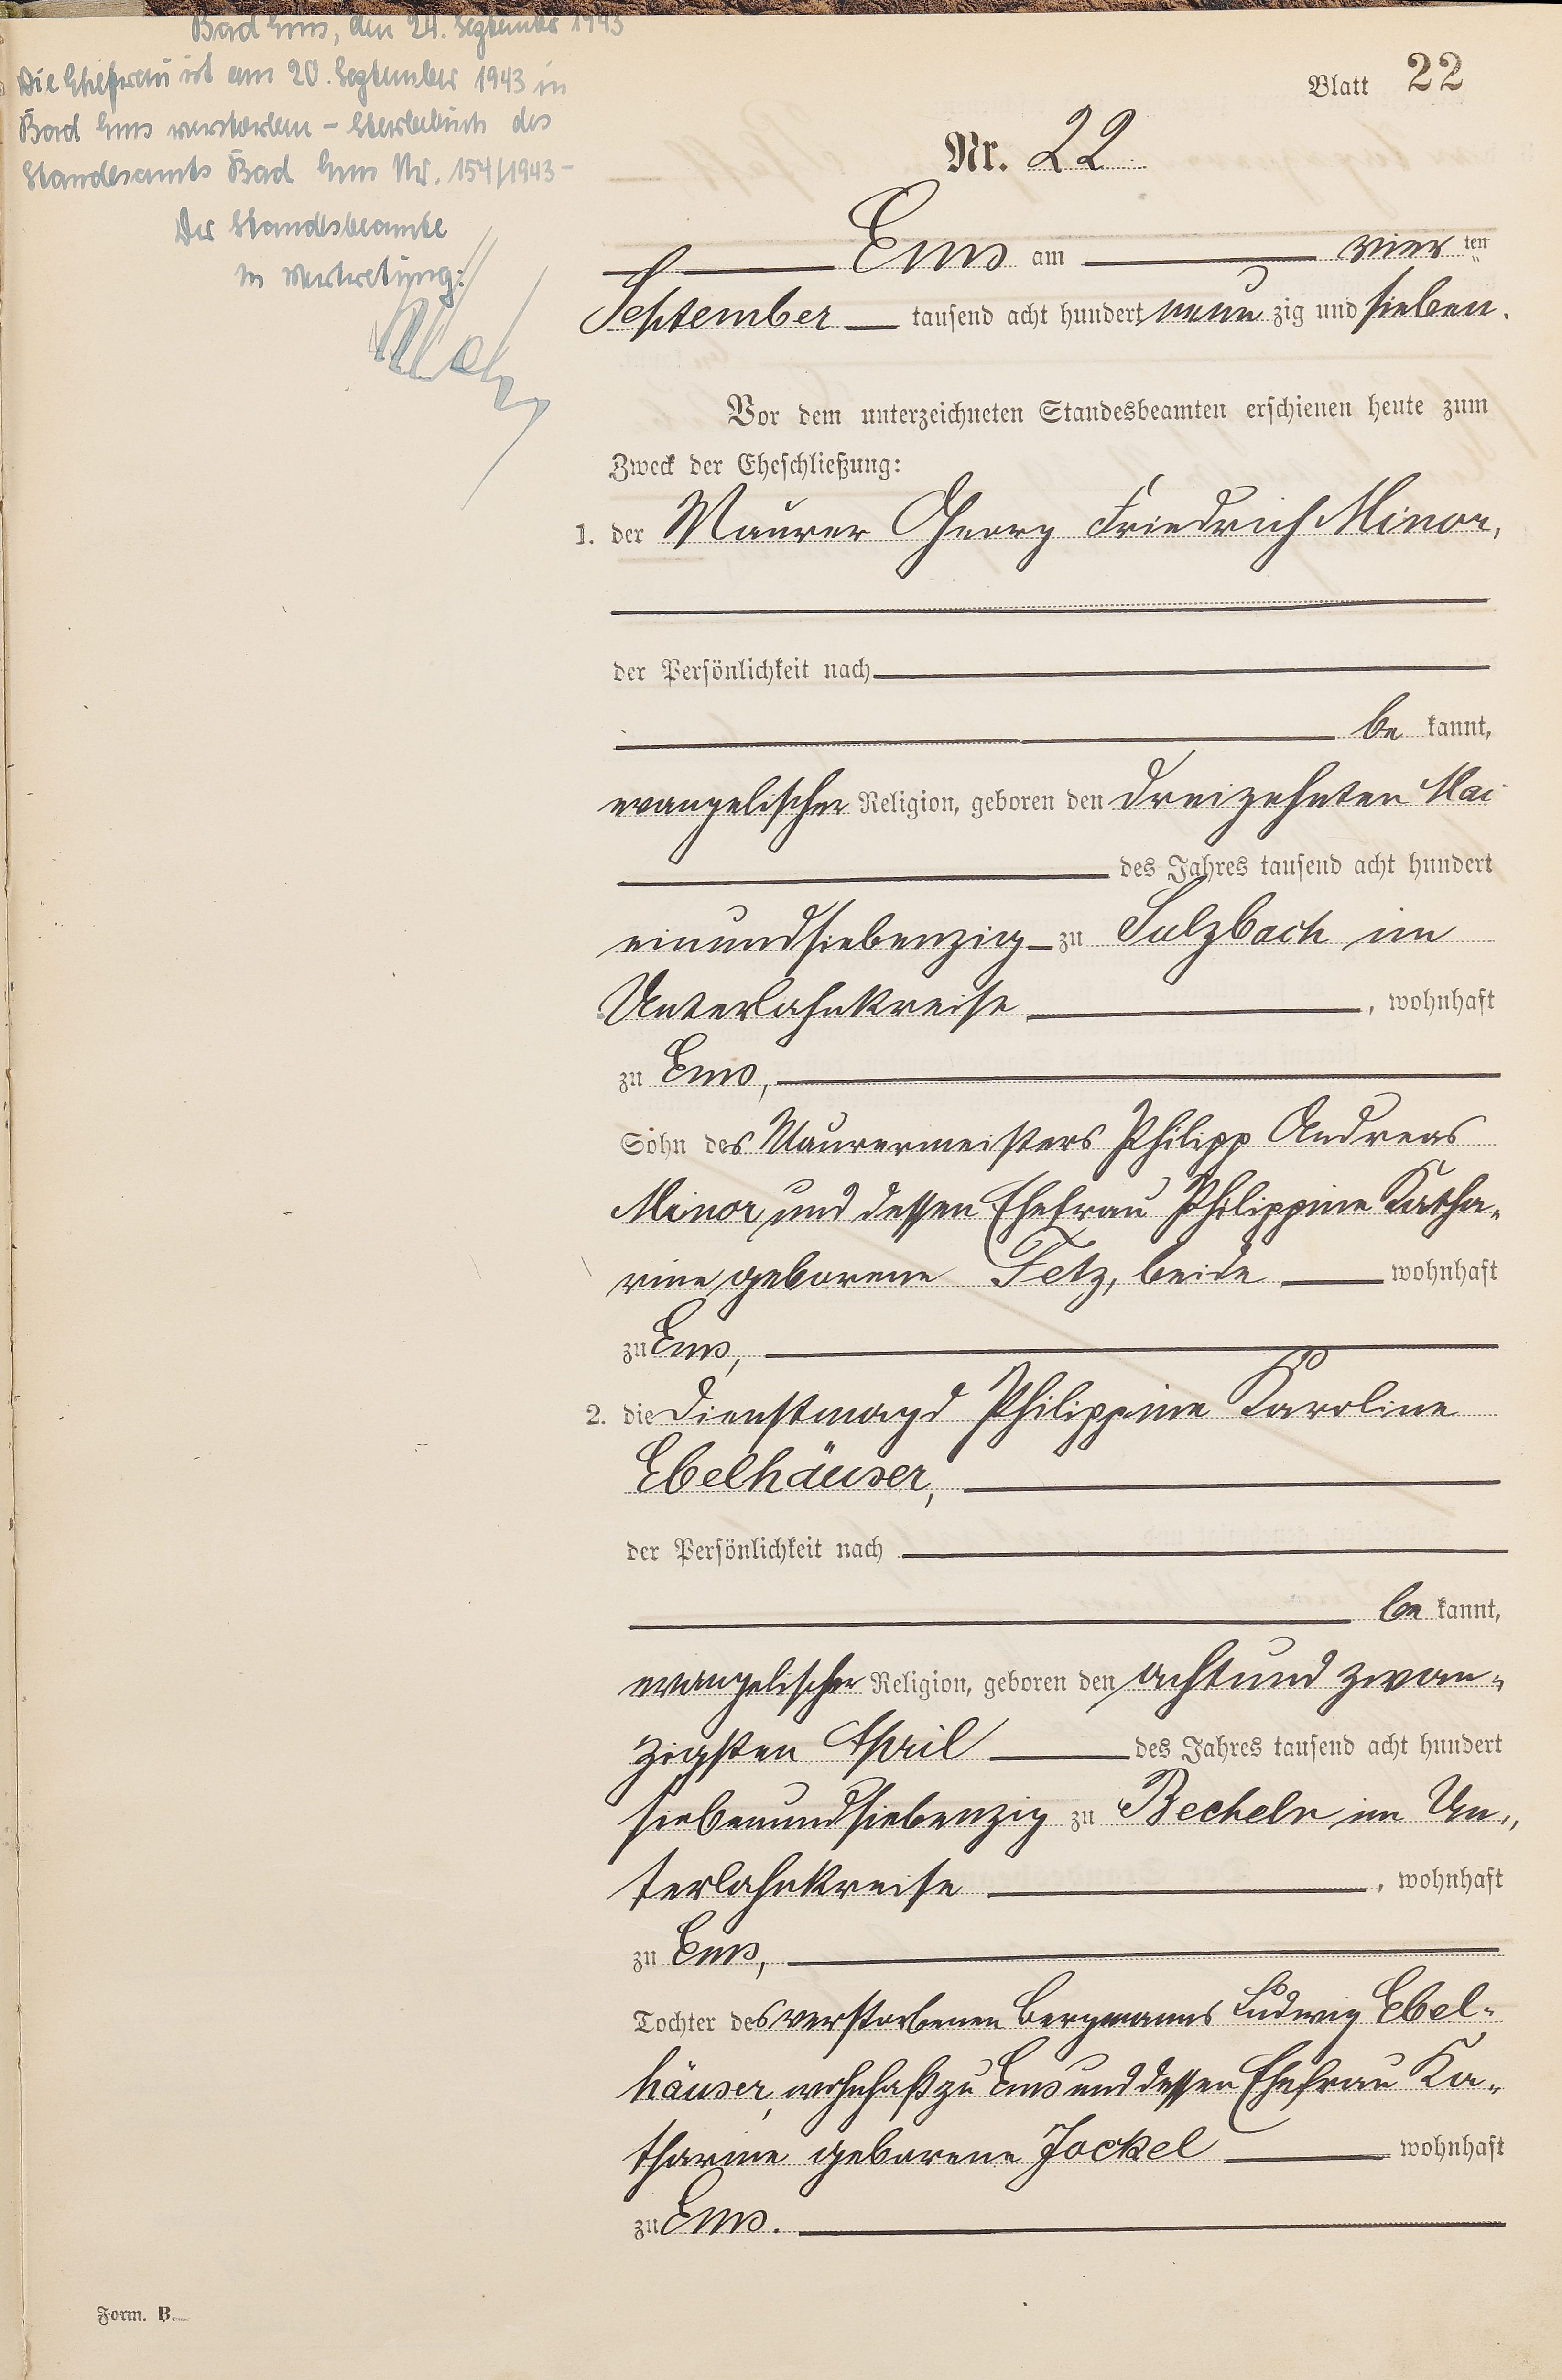 Bad Ems, den 24. September 1943
Die Ehefrau ist am 20. September 1943 in
Bad Ems verstorben – Sterbebuch des
Standesamts Bad Ems Nr. 154/1943 –
Der Standesbeamte
In Vertretung:
Blatt 22
Nr. 22
Ems am vier ten
September tausend acht hundert neun zig und sieben.
Vor dem unterzeichneten Standesbeamten erschienen heute zum
Zweck der Eheschließung:
1. der Maurer Georg Friedrich Minor,
der Persönlichkeit nach
be kannt,
evangelischer Religion, geboren den dreizehnten Mai
des Jahres tausend acht hundert
einundsiebenzig zu Sulzbach im
Unterlahnkreise, wohnhaft
zu Ems,
Sohn des Maurermeisters Philipp Andreas
Minor und dessen Ehefrau Philippine Katha-
rine geborene Fetz, beide wohnhaft
zu Ems,
2. die Dienstmagd Philippine Karoline
Ebelhäuser,
der Persönlichkeit nach
be kannt,
evangelischer Religion, geboren den achtund zwan-
zigsten April des Jahres tausend acht hundert
siebenundsiebenzig zu Becheln im Un-
terlahnkreise, wohnhaft
zu Ems,
Tochter des verstorbenen Bergmanns Ludwig Ebel-
häuser, wohnhaft zu Ems und dessen Ehefrau Ka-
tharine geborene Jockel wohnhaft
zu Ems.
Form. B.